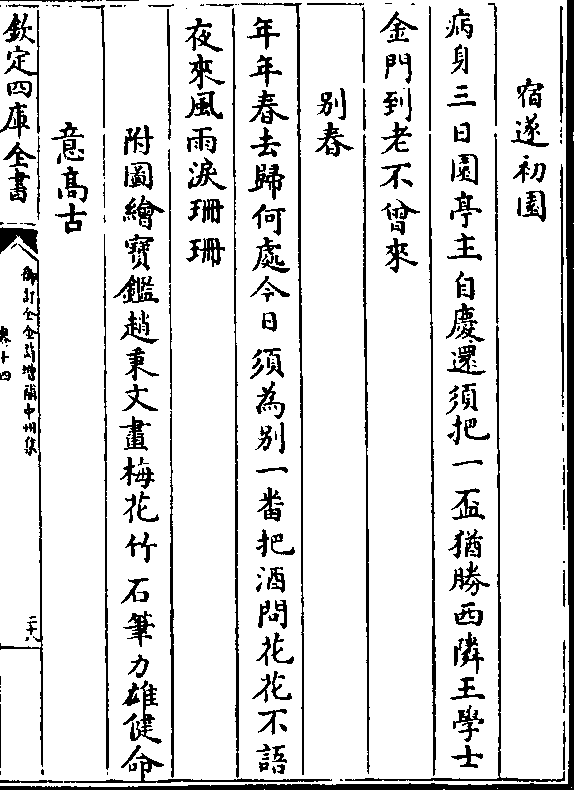 宿遂初園
病身三日園亭主自慶還須把一盃猶勝西隣王學士
金門到老不曾來
別春
年年春去歸何處今日須為別一番把酒問花花不語
夜來風雨淚珊珊
附圖繪寶鑑趙秉文畫梅花竹石筆力雄健命
意高古
欽定四庫全書
御訂全金詩增補中州集
卷十四
二十八